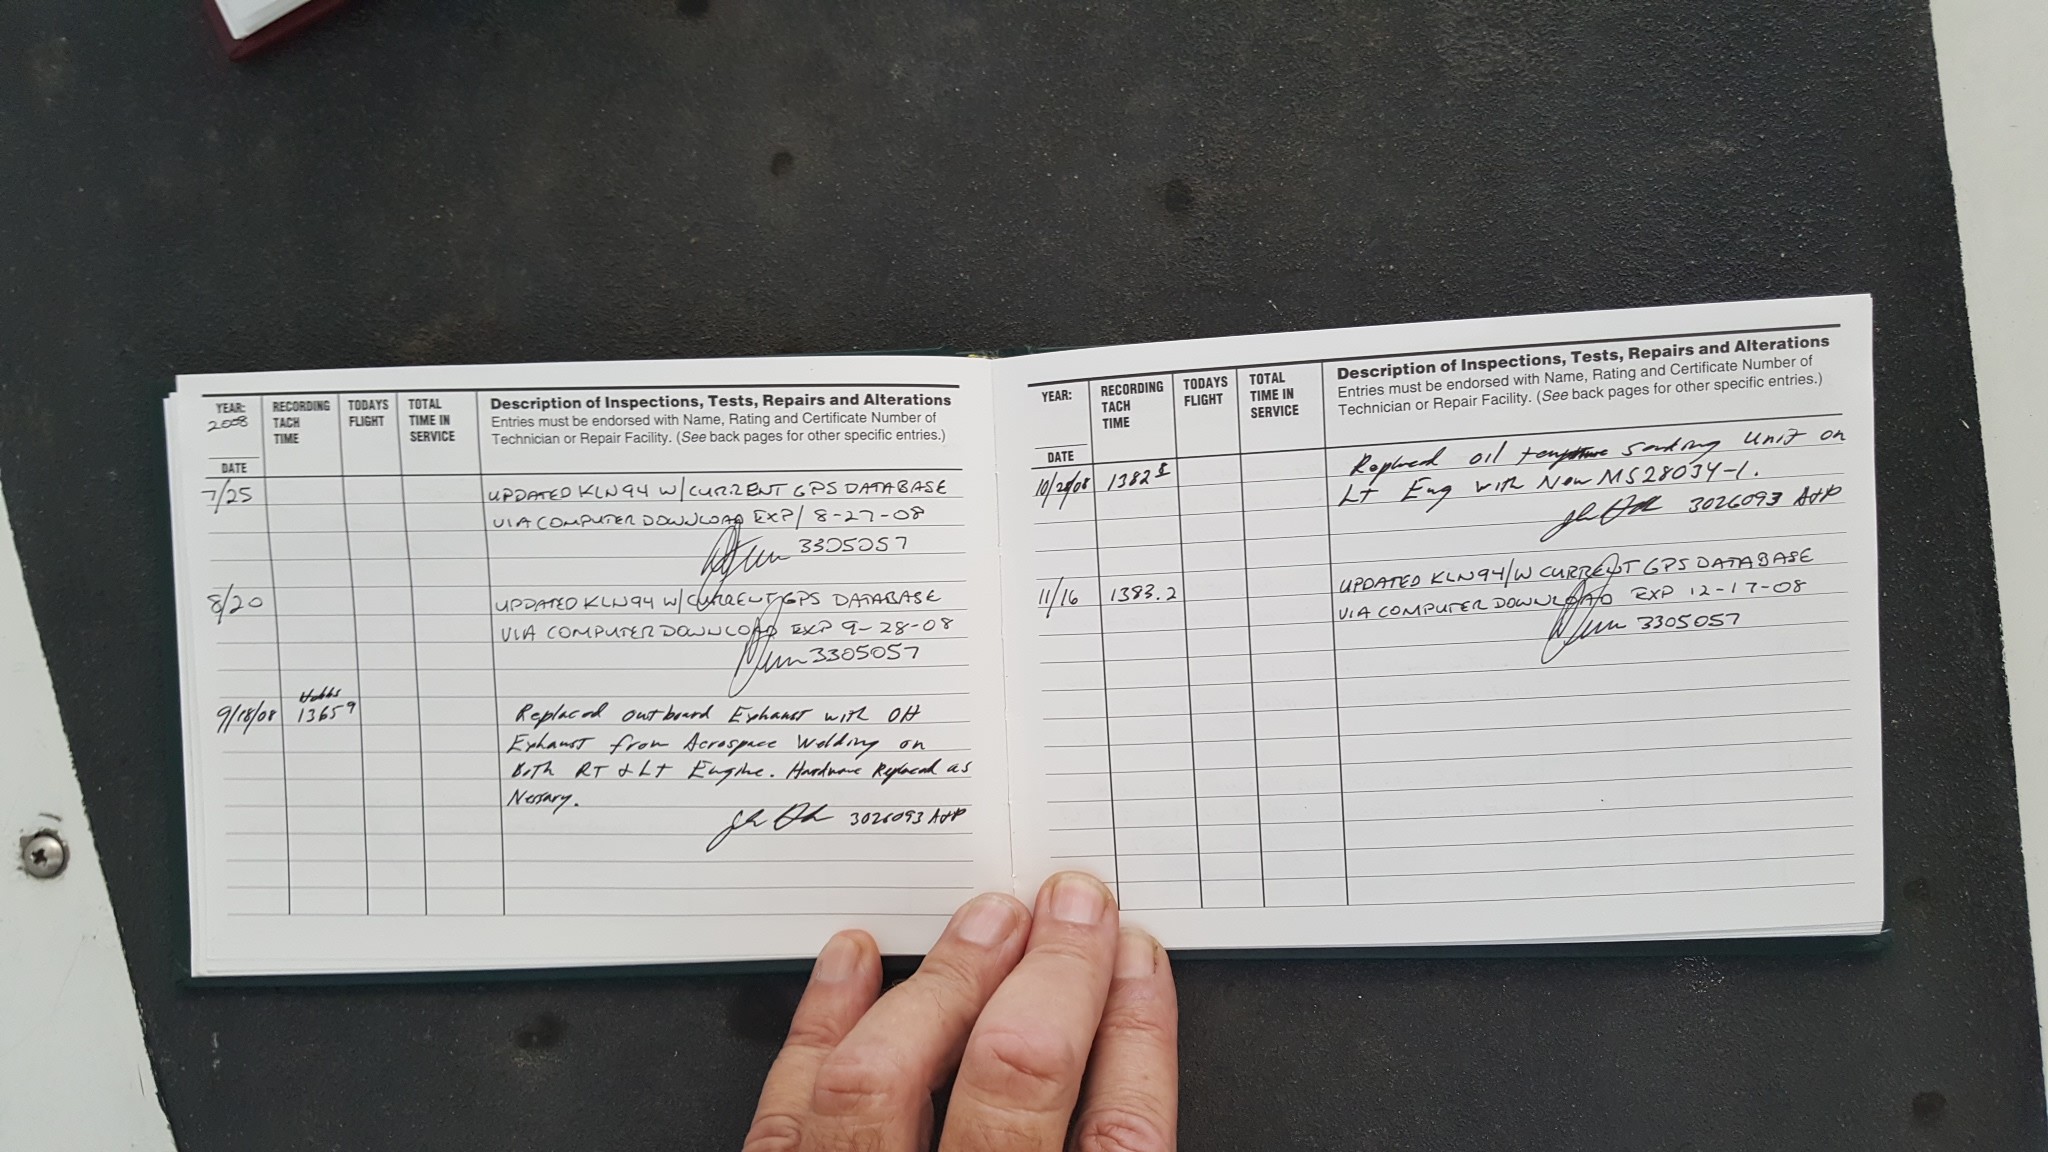 YEAR:
2008
RECORDING
TACH
TIME
TODAYS
FLIGHT
TOTAL
TIME IN
SERVICE
Description of Inspections, Tests, Repairs and Alterations
Entries must be endorsed with Name, Rating and Certificate Number of
Technician or Repair Facility. (See back pages for other specific entries.)
DATE
7/25
UPDATED KLN94 W/CURRENT GPS DATABASE
VIA COMPUTER DOWNLOAD EXP/ 8-27-08
3305057
8/20
UPDATED KLN94 W/CURRENT GPS DATABASE
VIA COMPUTER DOWNLOAD EXP 9-28-08
3305057
Hobbs
9/18/08 1365 9
Replaced outboard Exhaust with OH
Exhaust from Aerospace Welding on
both RT & Lt Engine. Hardware Replaced as
Nessary.
3026093 A&P
YEAR:
RECORDING
TACH
TIME
TODAYS
FLIGHT
TOTAL
TIME IN
SERVICE
Description of Inspections, Tests, Repairs and Alterations
Entries must be endorsed with Name, Rating and Certificate Number of
Technician or Repair Facility. (See back pages for other specific entries.)
DATE
1382
Replaced oil sending Unit on
Lt Eng with New MS28034-1.
3026093 A&P
11/16 1383.2
UPDATED KLN94/W CURRENT GPS DATABASE
VIA COMPUTER DOWNLOAD EXP 12-17-08
3305057